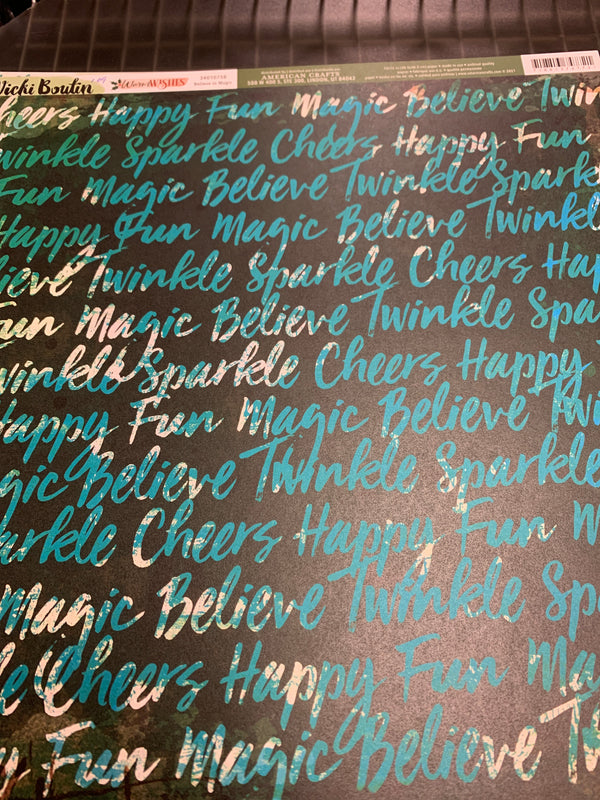 Vicki Boutin Warm WISHES 34005738 Believe in Magic AMERICAN CRAFTS
588 W 400 S, STE 300, LINDON, UT 84042
Cheers Happy Fun Magic Believe Twin
winkle Sparkle Cheers Happy Fun
Fun Magic Believe Twinkle Sparkl
Happy Fun Magic Believe Twinkl
lieve Twinkle Sparkle Cheers Hap
Fun Magic Believe Twinkle Spa
winkle Sparkle Cheers Happy
Happy Fun Magic Believe Twi
agic Believe Twinkle Sparkle
arkle Cheers Happy Fun M
Magic Believe Twinkle Sp
le Cheers Happy Fun Ma
py Fun Magic Believe Tw